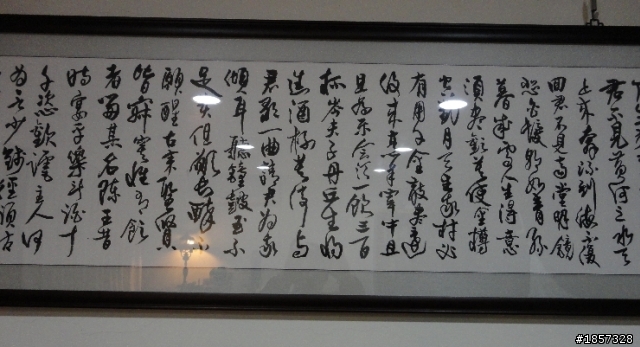 君不見黃河之水天
上來奔流到海不復
回君不見高堂明鏡
悲白髮朝如青絲
暮成雪人生得意
須盡歡莫使金樽
空對月天生我材必
有用千金散盡還
復來烹羊宰牛且
且為樂會須一飲三百
杯岑夫子丹丘生將
進酒杯莫停與
君歌一曲請君為我
傾耳聽鐘鼓玉不
足但願長醉不
願醒古來聖賢
皆寂寞惟有飲
者留其名陳王昔
時宴平樂斗酒十
千恣歡謔主人何
為言少錢徑須沽
#1857328